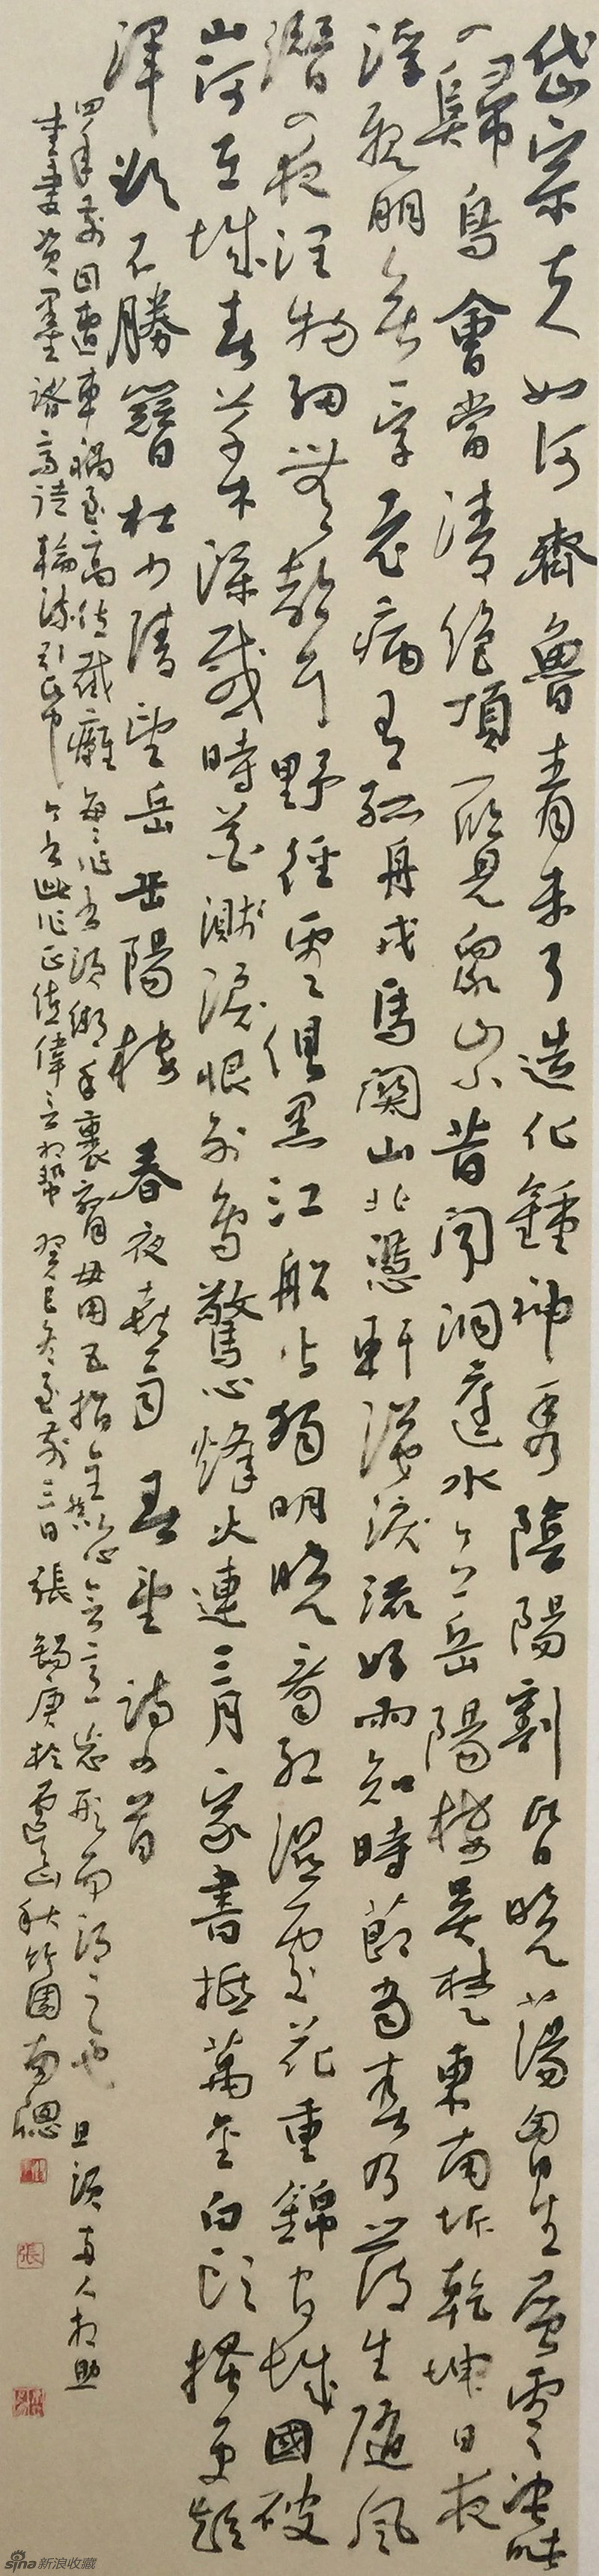 岱宗夫如何齊魯青未了造化鍾神秀陰陽割昏曉蕩胸生層雲決眦
入歸鳥會當凌絕頂一覽眾山小昔聞洞庭水今上岳陽樓吳楚東南坼乾坤日夜
浮親朋無一字老病有孤舟戎馬關山北憑軒涕淚流好雨知時節當春乃發生隨風
潛入夜潤物細無聲野徑雲俱黑江船火獨明曉看紅濕處花重錦官城國破
山河在城春草木深感時花濺淚恨別鳥驚心烽火連三月家書抵萬金白頭搔更短
渾欲不勝簪杜少陵望岳登岳陽樓春夜喜雨春望詩四首
四年前因遭車禍至高位截癱每作書須綁手裹腕毋用五指全憑心意忘形而得之也且須兩人相助
癸巳冬至前三日張錫庚於
sina新浪收藏